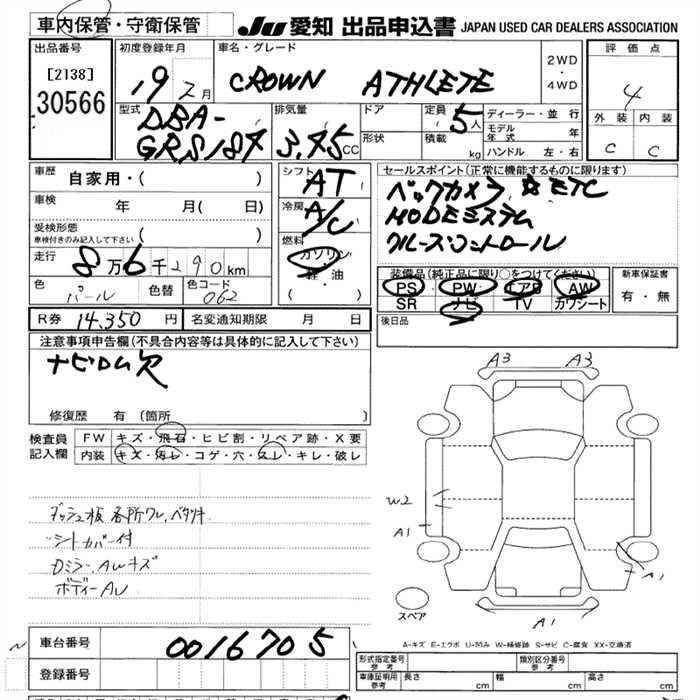 車内保管・守衛保管
JU 愛知 出品申込書 JAPAN USED CAR DEALERS ASSOCIATION
出品番号
[2138]
30566
初度登録年月
19 2月
車名・グレード
CROWN ATHLETE
2WD
・
4WD
評価点
4
外装 内装
C C
型式
DBA-
GRS184
排気量
3.45cc
ドア
形状
定員
5人
積載
kg
ディーラー・並行
モデル年式 年
ハンドル 左・右
車歴
自家用・( )
車検 年 月( 日)
受検形態
車検付きのみ記入して下さい ( )
走行
8万6千290km
色
パール
色替
色コード
062
シフト
AT
冷房
A/C
燃料
ガソリン
軽・油
( )
セールスポイント(正常に機能するものに限ります)
バックカメラ ETC
MODEシステム
クルーズコントロール
装備品(純正品に限り○をつけてください)
PS PW エアB AW
SR ナビ TV カワシート
新車保証書
有・無
後日品
R券 14,350円 名変通知期限 月 日
注意事項申告欄(不具合内容等は具体的に記入して下さい)
ナビロム欠
修復歴 有(箇所 )
検査員
記入欄
FW キズ・飛石・ヒビ割・リペア跡・X要
内装 キズ・汚レ・コゲ・穴・スレ・キレ・破レ
ダッシュ板 各所ワレ、ベタツキ
シートカバー付
Dミラー、AWキズ
ボディーAU
A3 A3
W2
A1
A1
A1
スペア
A-キズ E-エクボ U-凹み W-補修跡 S-サビ C-腐食 XX-交換済
車台番号
0016705
登録番号
形式指定番号
参考
類別区分番号
参考
車庫証明用
参考
長さ cm 幅 cm 高さ cm